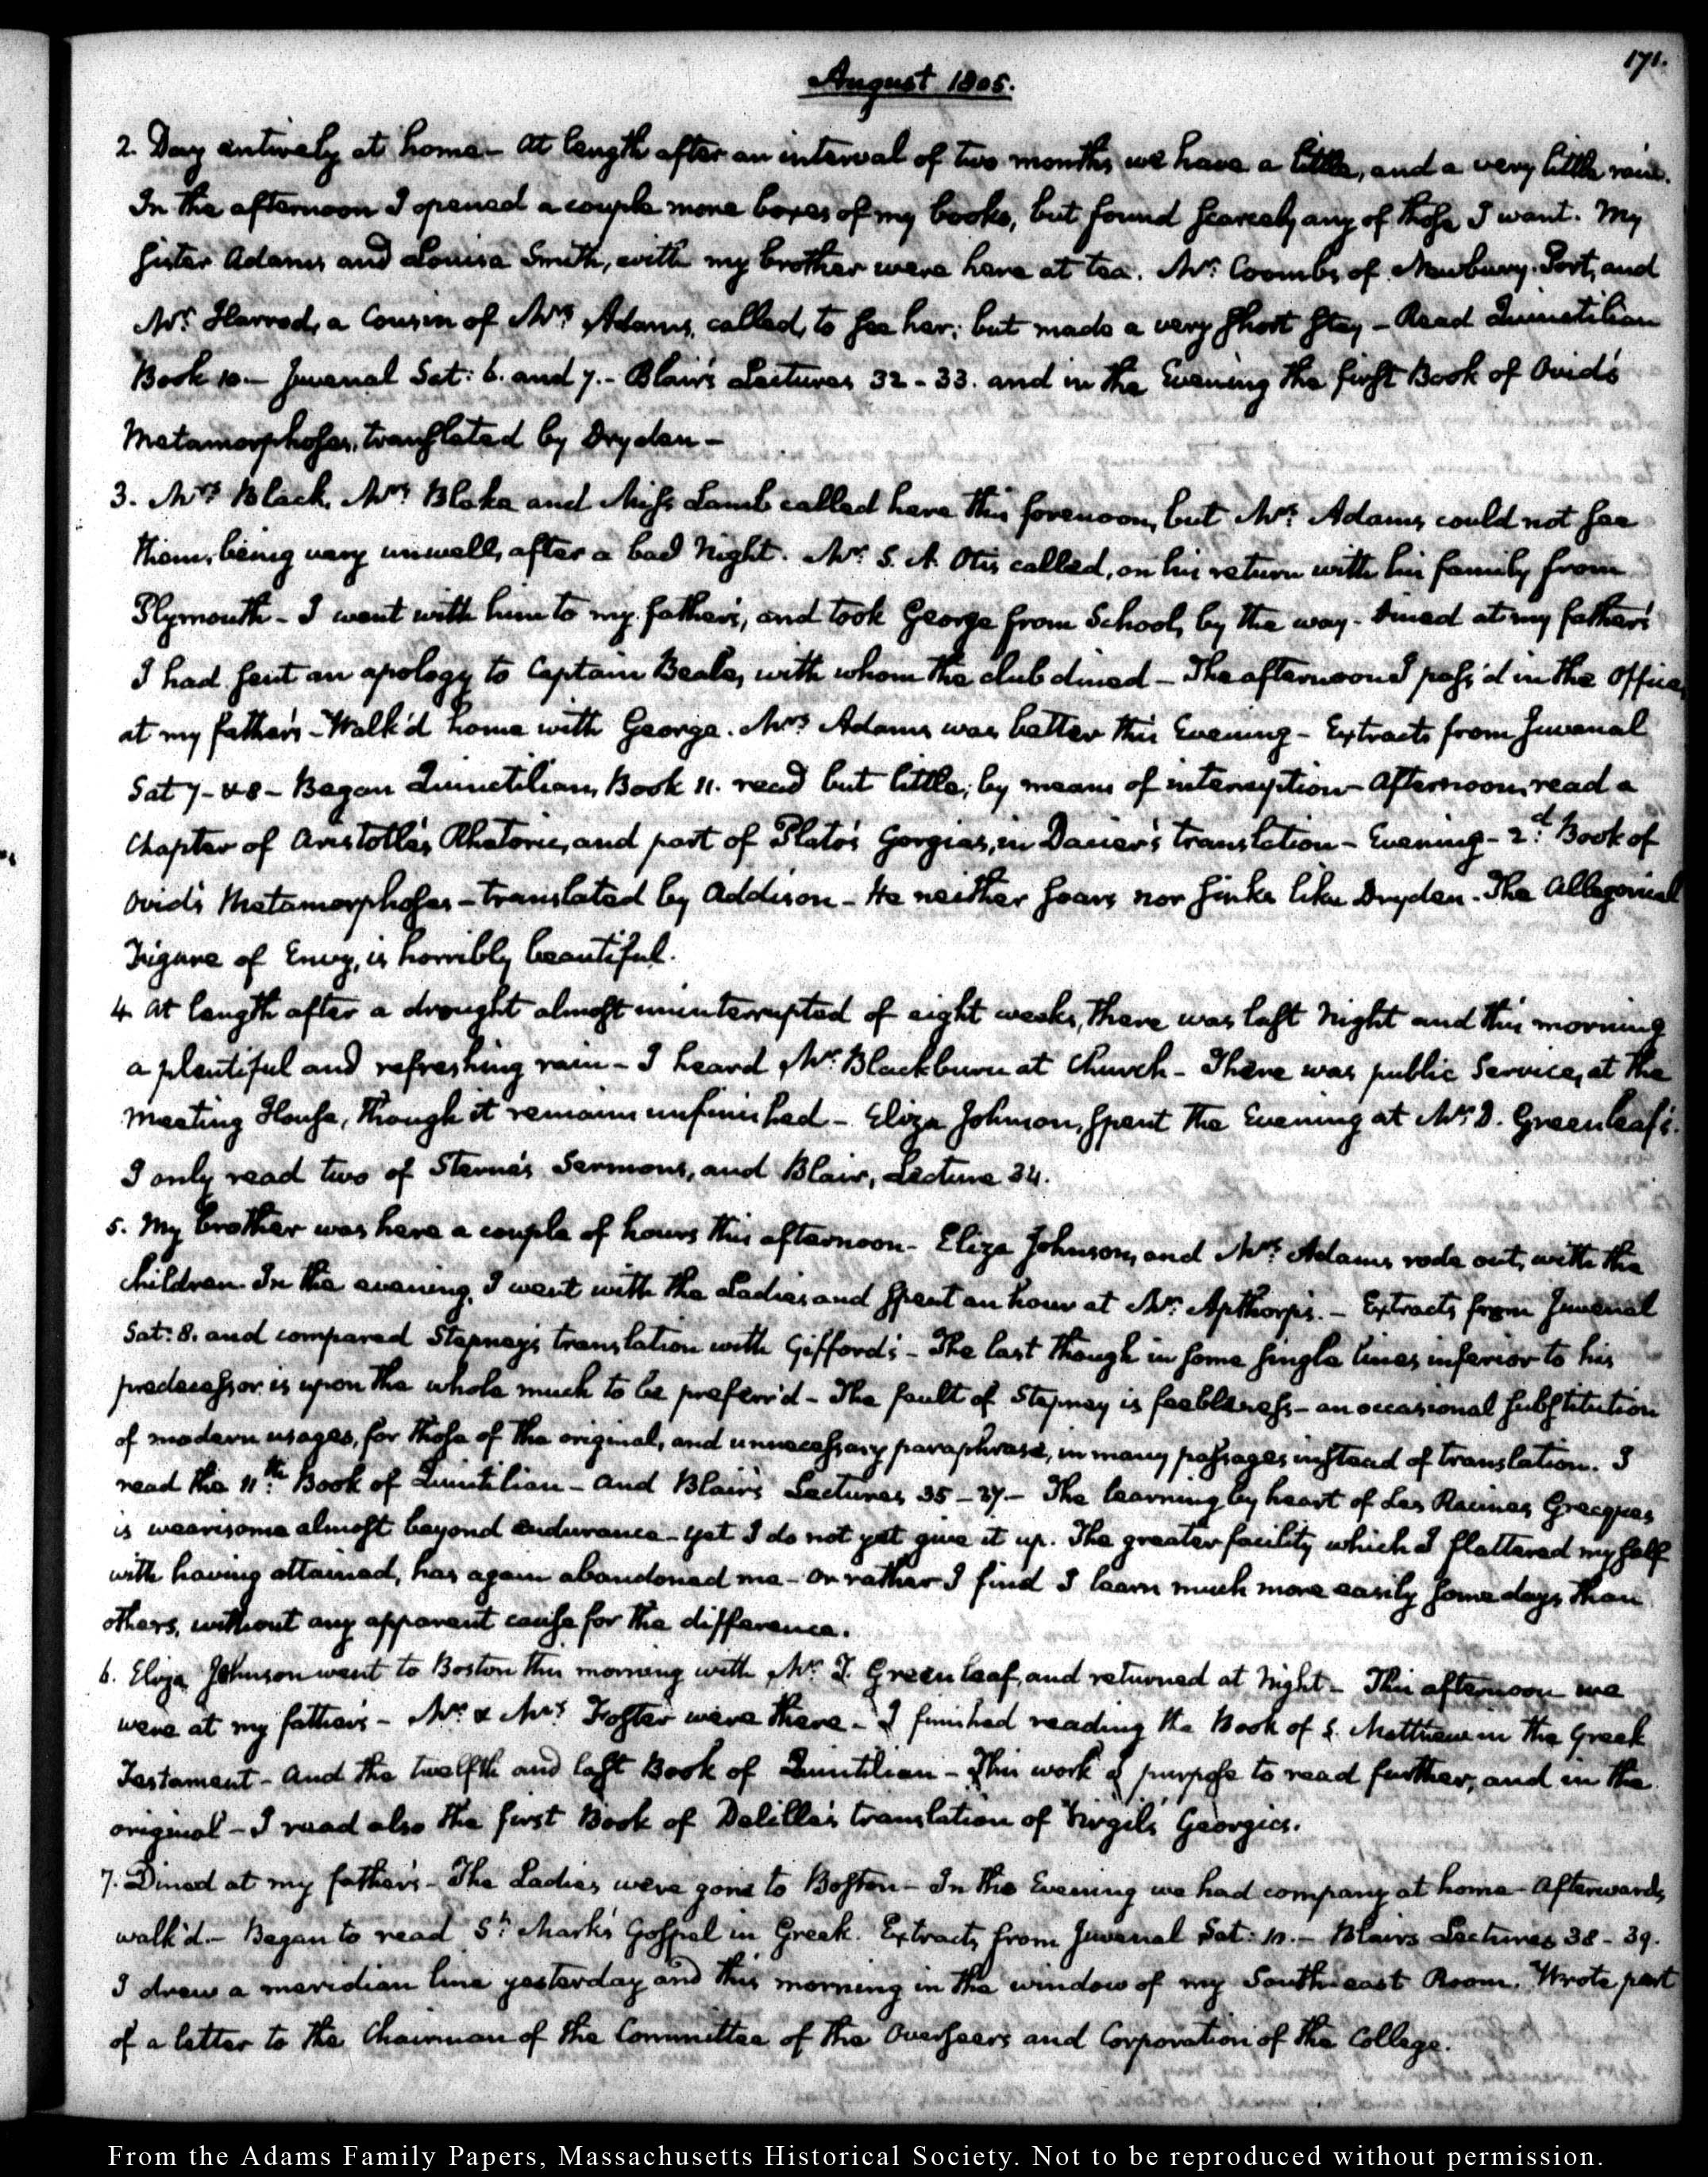 171.
August 1805.
2. Day entirely at home — At length after an interval of two months we have a little, and a very little rain.
In the afternoon I opened a couple more boxes of my books, but found scarcely any of those I want. My
Sister Adams and Louisa Smith, with my brother were here at tea. Mr. Coombs of Newbury-Port, and
Mr. Harrod, a Cousin of Mrs. Adams, called, to see her; but made a very short stay — Read Quinctilian
Book 10. — Juvenal Sat: 6. and 7. — Blair's Lectures 32 - 33. and in the Evening the first Book of Ovid's
Metamorphoses, translated by Dryden —
3. Mrs. Black, Mrs. Blake and Miss Lamb called here this forenoon, but Mrs. Adams, could not see
them, being very unwell, after a bad Night. Mr. S. A. Otis called, on his return with his family from
Plymouth — I went with him to my father's, and took George from School, by the way — Dined at my father's
I had sent an apology to Captain Beale, with whom the club dined — The afternoon I pass'd in the Office,
at my father's — Walk'd home with George. Mrs. Adams was better this Evening — Extracts from Juvenal
Sat 7 - & 8 — Began Quinctilian, Book 11. read but little; by means of interruption — Afternoon, read a
Chapter of Aristotle's Rhetoric, and part of Plato's Gorgias, in Dacier's translation — Evening — 2d. Book of
Ovid's Metamorphoses — translated by Addison — He neither soars nor sinks like Dryden. The Allegorical
Figure of Envy, is horribly beautiful.
4. At length after a drought almost uninterrupted of eight weeks, there was last Night and this morning
a plentiful and refreshing rain — I heard Mr. Blackburn at Church — There was public Service, at the
Meeting House, though it remains unfinished — Eliza Johnson, spent the Evening at Mr. D. Greenleaf's.
I only read two of Sterne's Sermons, and Blair, Lecture 34.
5. My brother was here a couple of hours this afternoon — Eliza Johnson, and Mrs. Adams, rode out, with the
children. In the evening, I went with the Ladies and spent an hour at Mr. Apthorp's. — Extracts from Juvenal
Sat: 8. and compared Stepney's translation with Gifford's — The last though in some single lines inferior to his
predecessor is upon the whole much to be preferr'd — The fault of Stepney is feebleness — an occasional substitution
of modern usages, for those of the original, and unnecessary paraphrase, in many passages instead of translation. I
read the 11th. Book of Quintilian — and Blair's Lectures 35 - 37. — The learning by heart of Les Racines Grecques
is wearisome almost beyond endurance — yet I do not yet give it up. The greater facility which I flattered myself
with having attained, has again abandoned me — or rather I find I learn much more easily some days than
others, without any apparent cause for the difference.
6. Eliza Johnson went to Boston this morning with Mr. T. Greenleaf, and returned at Night — This afternoon we
were at my father's — Mr. & Mrs. Foster were there — I finished reading the Book of S. Matthew in the Greek
Testament — And the twelfth and last Book of Quintilian — This work I purpose to read further, and in the
original — I read also the first Book of Delille's translation of Virgil's Georgics.
7. Dined at my father's — The Ladies were gone to Boston — In the Evening we had company at home — Afterwards,
walk'd. — Began to read St. Mark's Gospel in Greek. Extracts from Juvenal Sat: 10. — Blair's Lectures 38 - 39.
I drew a meridian line yesterday and this morning in the window of my Southeast Room. Wrote part
of a letter to the Chairman of the Committee of the Overseers and Corporation of the College.
From the Adams Family Papers, Massachusetts Historical Society. Not to be reproduced without permission.